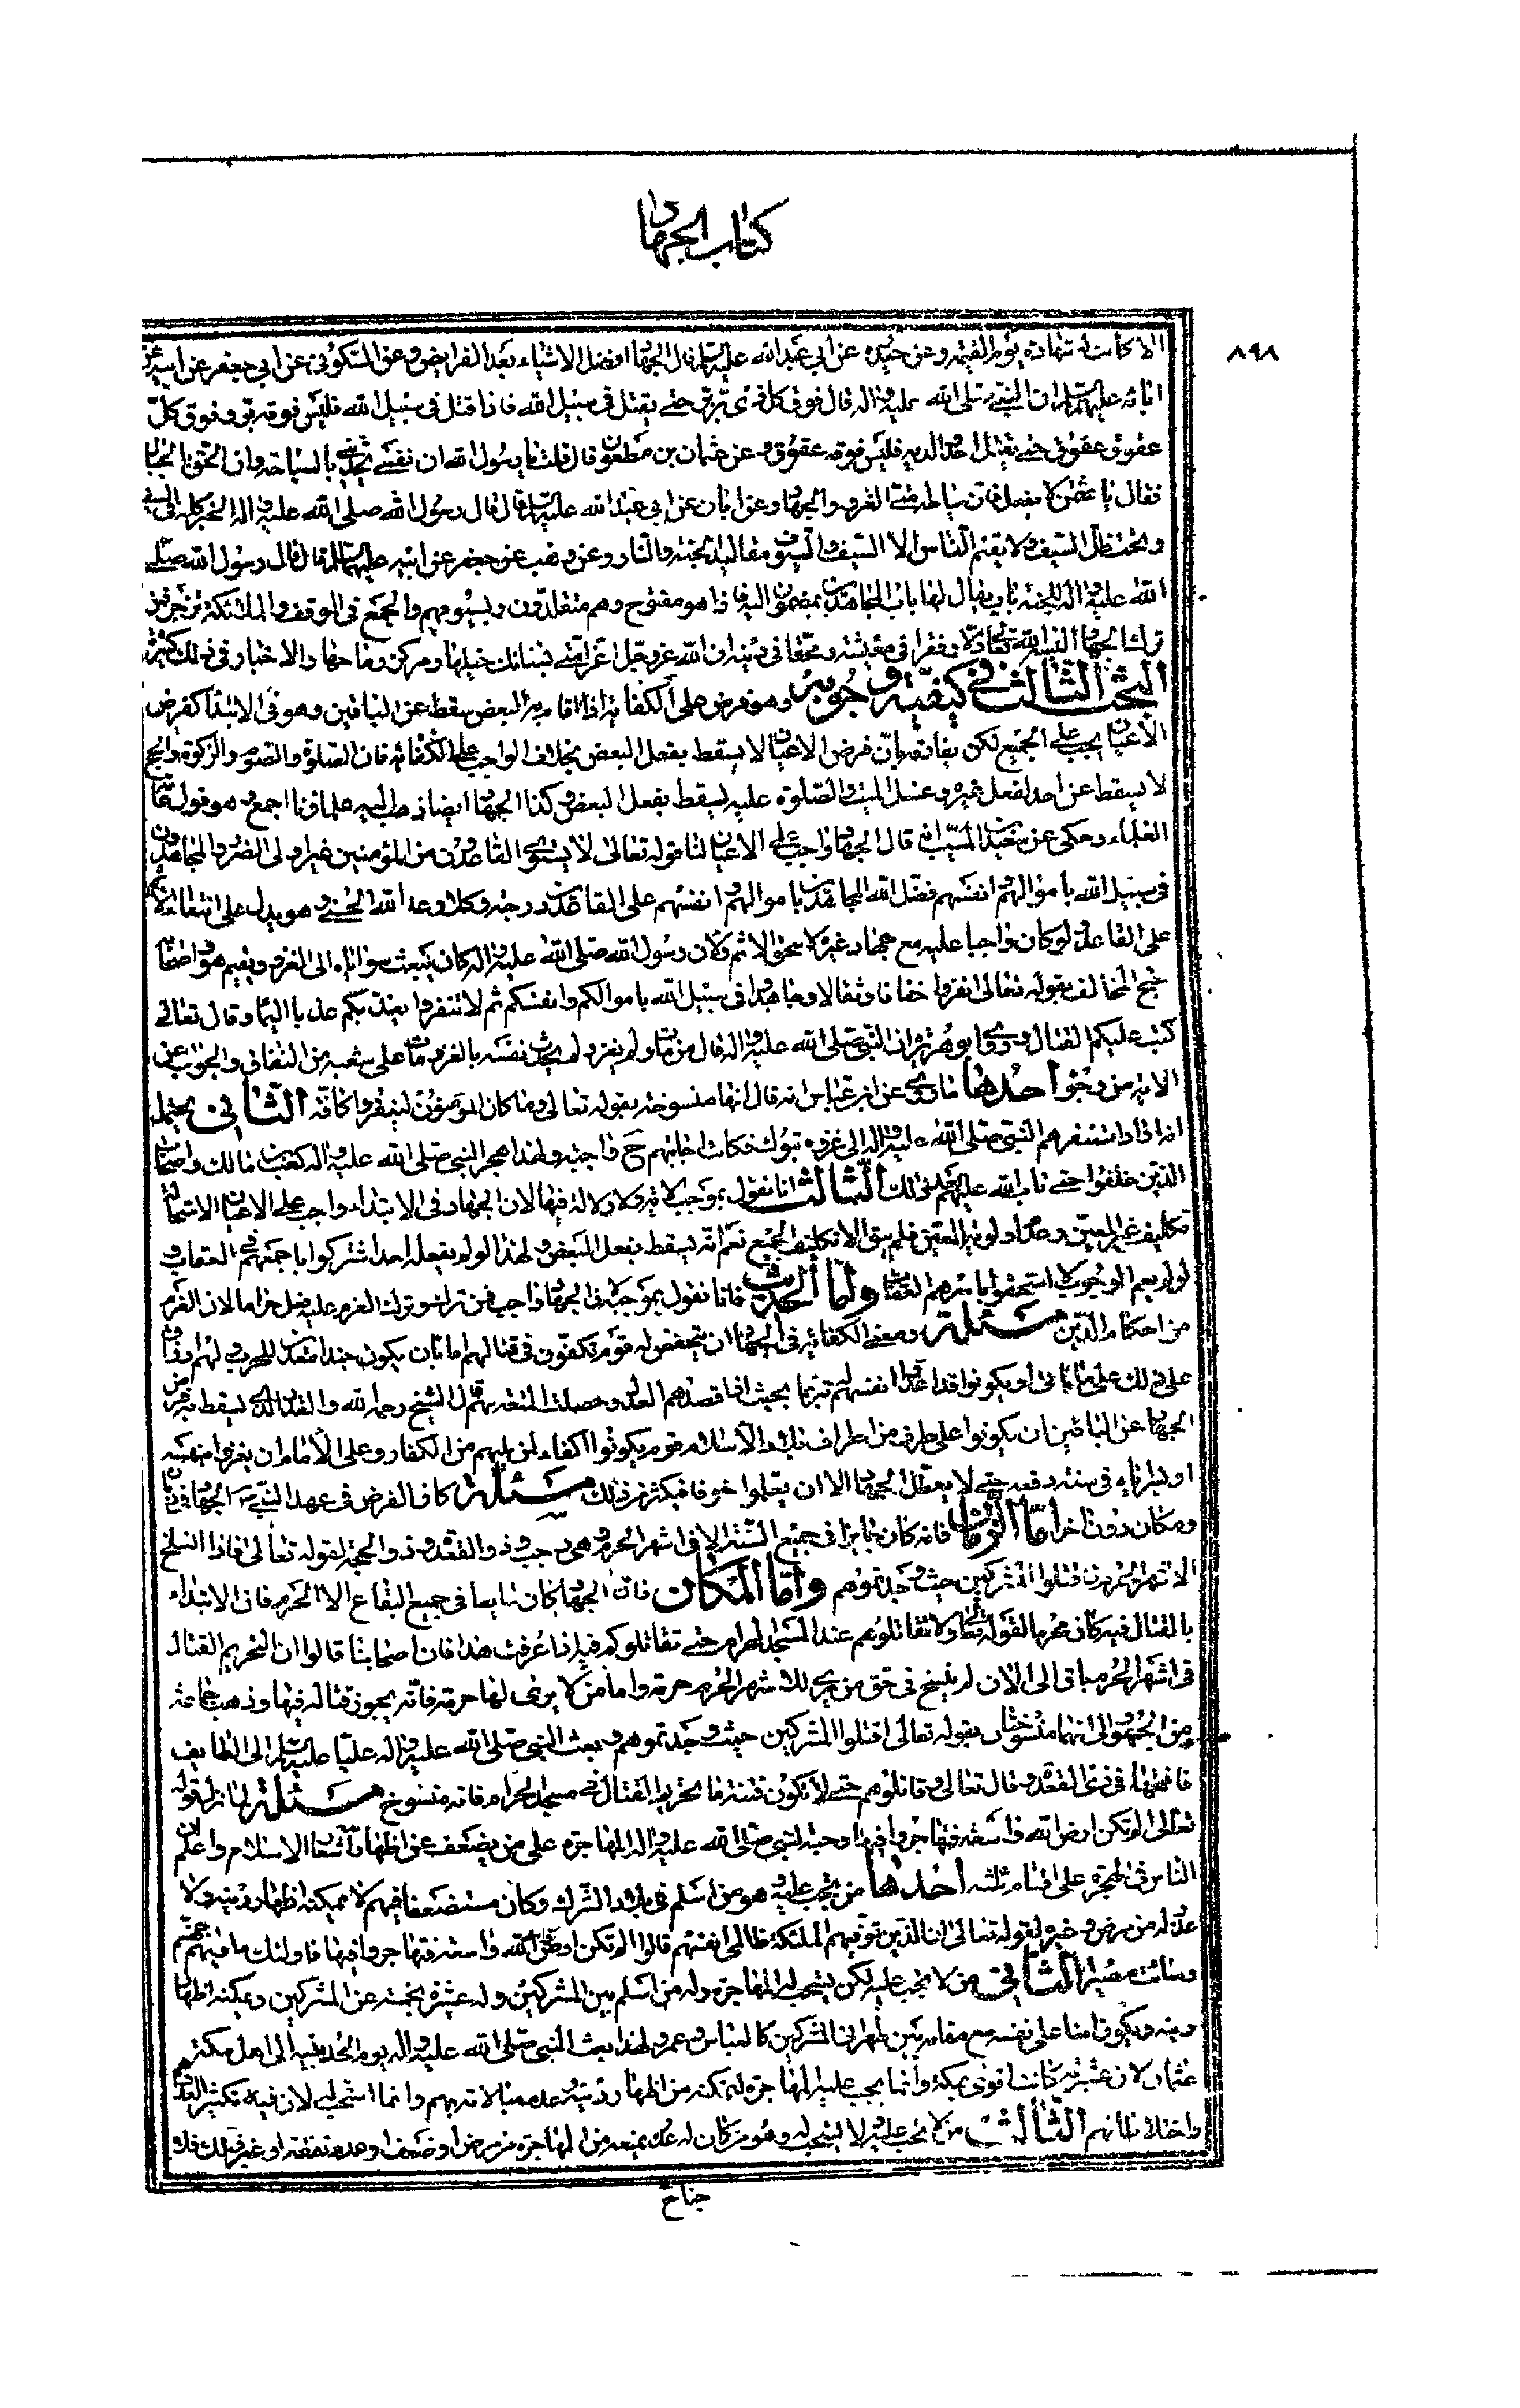 كتاب الجهاد
٨٩٨
الا كانت له شهادة يوم القيمة وعن حيدرة عن ابي عبد الله عليه السلم قال الجهاد افضل الاشياء بعد الفرايض وعن السكوني عن ابي جعفر عن ابيه عن
ابائه عليهم السلم ان النبي صلى الله عليه واله قال فوق كل ذى بر بر حتى يقتل في سبيل الله فاذا قتل في سبيل الله فليس فوقه بر وفوق كل
عقوق عقوق حتى يقتل احد والديه فليس فوقه عقوق وعن عثمان بن مظعون قال قلت يا رسول الله ان نفسى تحدثنى بالسياحة وان الحق بالجبال
فقال يا عثمن لا تفعل فان سياحة امتى الغزو والجهاد وعن ابان عن ابي عبد الله عليه السلم قال قال رسول الله صلى الله عليه واله الخير كله في السيف
وتحت ظل السيف ولا يقيم الناس الا السيف والسيوف مقاليد الجنة والنار وعن وهب عن جعفر عن ابيه عليهما السلم قال قال رسول الله صلى
الله عليه واله للجنة باب يقال لها باب المجاهدين يمضون اليه فاذا هو مفتوح وهم متقلدون بسيوفهم والجمع في الموقف والملئكة تزجر فمن
ترك الجهاد البسه الله تعالى ذلا وفقرا في معيشته ومحقا في دينه ان الله عز وجل اغز امتى بسنابك خيلها ومركز رماحها والاخبار في ذلك كثيرة
البحث الثالث في كيفية وجوبه وهو فرض على الكفاية اذا قام به البعض سقط عن الباقين وهو في الابتدا كفرض
الاعيان يجب على الجميع لكن يفارقه بان فرض الاعيان لا يسقط بفعل البعض بخلاف الواجب على الكفاية فان الصلوة والصوم والزكوة والحج
لا يسقط عن احد لفعل غيره وغسل الميت والصلوة عليه يسقط بفعل البعض وكذا الجهاد ايضا ذهب اليه علماؤنا اجمع وهو قول عامة
العلماء وحكى عن سعيد بن المسيب انه قال الجهاد واجب على الاعيان لنا قوله تعالى لا يستوى القاعدون من المؤمنين غير اولى الضرر والمجاهدون
في سبيل الله باموالهم وانفسهم فضل الله المجاهدين باموالهم وانفسهم على القاعدين درجة وكلا وعد الله الحسنى وهو يدل على انتفاء الاثم
على القاعد ولو كان واجبا عليه مع جهاد غيره لاستحق الاثم ولان رسول الله صلى الله عليه واله كان يبعث سراياه الى الغزو ويقيم هو واصحابه
احتج المخالف بقوله تعالى انفروا خفافا وثقالا وجاهدوا في سبيل الله باموالكم وانفسكم ثم لا تنفروا يعذبكم عذابا اليما وقال تعالى
كتب عليكم القتال وروى ابو هريرة ان النبي صلى الله عليه واله قال من مات ولم يغزو لم يحدث نفسه بالغزو مات على شعبة من النفاق والجواب عن
الاية من وجوه احدها ما روى عن ابن عباس انه قال انها منسوخة بقوله تعالى وما كان المؤمنون لينفروا كافة الثاني يحتمل
انه اذا استنفرهم النبي صلى الله عليه واله الى غزوة تبوك فكانت اجابتهم ح واجبة ولهذا هجر النبي صلى الله عليه واله كعب بن مالك واصحابه
الذين خلفوا حتى تاب الله عليهم بعد ذلك الثالث انا نقول بموجب الاية ولا دلالة فيها لان الجهاد في الابتداء واجب على الاعيان لاستحالة
تكليف غير المعين وعدم اولوية المعين فلم يبق الا تكليف الجميع نعم انه يسقط بفعل البعض ولهذا لو لم يفعله احد اشتركوا باجمعهم في العقاب و
لو لم يعم الوجوب لما استحقوا باسرهم العقاب واما الحديث فانا نقول بموجبه لان الجهاد واجب فمن ترك الغزو ترك العزم عليه فعل حراما لان العزم
من احكام الدين مسئلة ومعنى الكفاية في الجهاد ان ينهض له قوم يكفون في قتالهم اما بان يكون جندا معدين للحرب ولهم ارزاق
على ذلك على ما ياتى او يكونوا قد اعدوا انفسهم له تبرعا بحيث اذا قصدهم العدو حصلت المنعة بهم قال الشيخ رحمه الله والقدر الذى يسقط به فرض
الجهاد عن الباقين ان يكونوا على كل طرف من اطراف بلاد الاسلام قوم يكونوا اكفاء لمن يليهم من الكفار وعلى الامام ان يغزوا بنفسه
او بسراياه في كل سنة دفعة حتى لا يعطل الجهاد الا ان يعلموا خوفا فيكثر من ذلك مسئلة كان الفرض في عهد النبي ص الجهاد في زمان
ومكان دون اخر اما الزمان فانه كان جايزا في جميع السنة الا في اشهر الحرم وهى رجب وذو القعدة وذو الحجة لقوله تعالى فاذا انسلخ
الاشهر الحرم فاقتلوا المشركين حيث وجدتموهم واما المكان فان الجهاد كان سايغا في جميع البقاع الا الحرم فان الابتداء
بالقتال فيه كان محرما لقوله تعالى ولا تقاتلوهم عند المسجد الحرام حتى يقاتلوكم فيه اذا عرفت هذا فان اصحابنا قالوا ان التحريم القتال
في اشهر الحرم باق الى الان لم ينسخ في حق من يرى للاشهر الحرم حرمة واما من لا يرى لها حرمة فانه يجوز قتاله فيها وذهب جماعة
من الجمهور الى انهما منسوختان بقوله تعالى اقتلوا المشركين حيث وجدتموهم وبعث النبي صلى الله عليه واله عليا عليه السلم الى الطايف
فافتتحها في ذى القعدة وقال تعالى وقاتلوهم حتى لا تكون فتنة فاما تحريم القتال في مسجد الحرام فانه منسوخ مسئلة لما نزل قوله
تعالى الم تكن ارض الله واسعة فتهاجروا فيها وجب النبي صلى الله عليه واله المهاجرة على من يضعف عن اظهار شعاير الاسلام واعلم ان
الناس في الهجرة على اقسام ثلثة احدها من يجب عليه وهو من اسلم في بلاد الشرك وكان مستضعفا فيهم لا يمكنه اظهار دينه ولا
عذر له من مرض وغيره لقوله تعالى ان الذين توفيهم الملئكة ظالمى انفسهم قالوا الم تكن ارض الله واسعة فتهاجروا فيها فاولئك ماويهم جهنم
وسائت مصيرا الثاني من لا يجب عليه لكن يستحب له المهاجرة وله من اسلم بين المشركين وله عشيرة تحميه عن المشركين ويمكنه اظهار
دينه ويكون امنا على نفسه مع مقامه بين ظهراني المشركين كالعباس وعمر ولهذا بعث النبي صلى الله عليه واله يوم الحديبية الى اهل مكة
عثمان لان عشيرته كانت اقوى بمكة وانما يجب عليه المهاجرة لتمكنه من اظهار دينه وعدم مبالاته بهم وانما استحب له لان فيه تكثير العدد
واختلاطا بهم الثالث من لا تجب عليه ولا تستحب له وهو من كان له عذر يمنعه من المهاجرة من مرض او ضعف او عدم نفقة او غير ذلك فلا
جناح